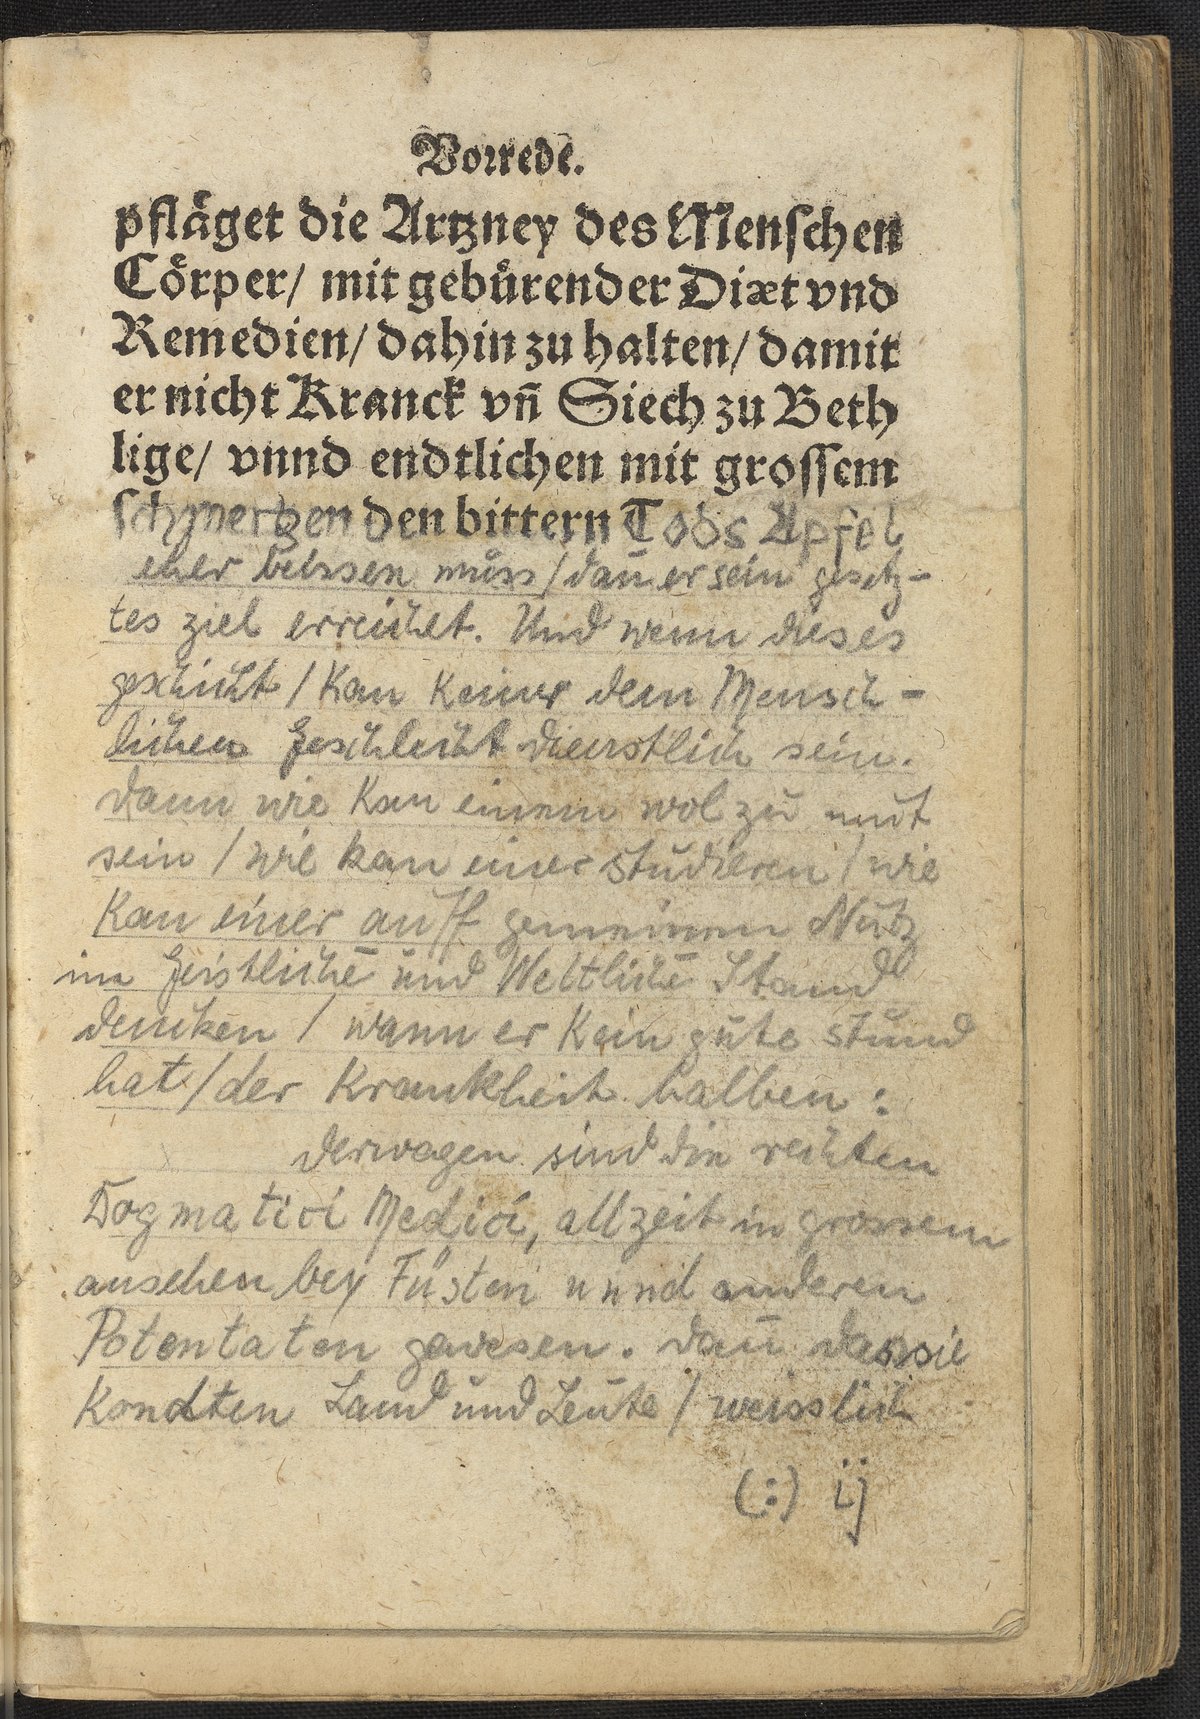 Vorrede.
pfläget die Artzney des Menschen
Cörper/ mit gebürender Diæt vnd
Remedien/ dahin zu halten/ damit
er nicht Kranck vñ Siech zu Beth
lige/ vnnd endtlichen mit grossem
schmertzen den bittern Tods Apfel
eher beissen muss / dañ er sein gesetz-
tes ziel erreichet. Und wenn dieses
geschicht / Kan Keiner dem Mensch-
lichen Geschlecht dienstlich sein.
dann wie Kan einem wol zu mut
sein / wie kan einer studieren / wie
Kan einer auff gemeinen Nutz
im Geistlichē und Weltlichē Stand
dencken / wann er Kein gute stund
hat / der Krankheit halben:
derwegen sind die rechten
Dogmatici Medici, allzeit in grossem
ansehen bey Füsten unnd anderen
Potentaten gewesen. dañ dass sie
Kondten Land und Leute / weisslich
(:) ij